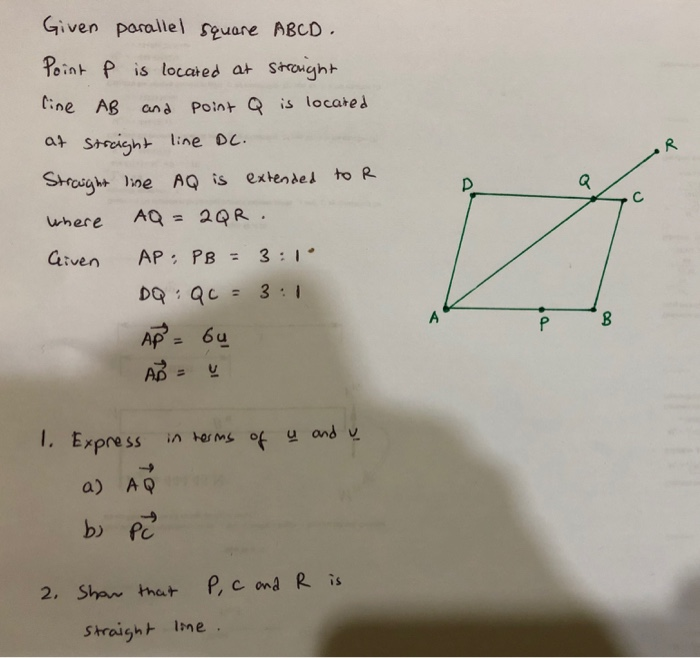 Given parallel square ABCD.
Point P is located at straight
line AB and point Q is located
at straight line DC.
Straight line AQ is extended to R
where AQ = 2QR.
Given AP : PB = 3 : 1
DQ : QC = 3 : 1
AP→ = 6u
AD→ = v
1. Express in terms of u and v
a) AQ→
b) PC→
2. Show that P, C and R is
straight line.
R
D
Q
C
A
P
B